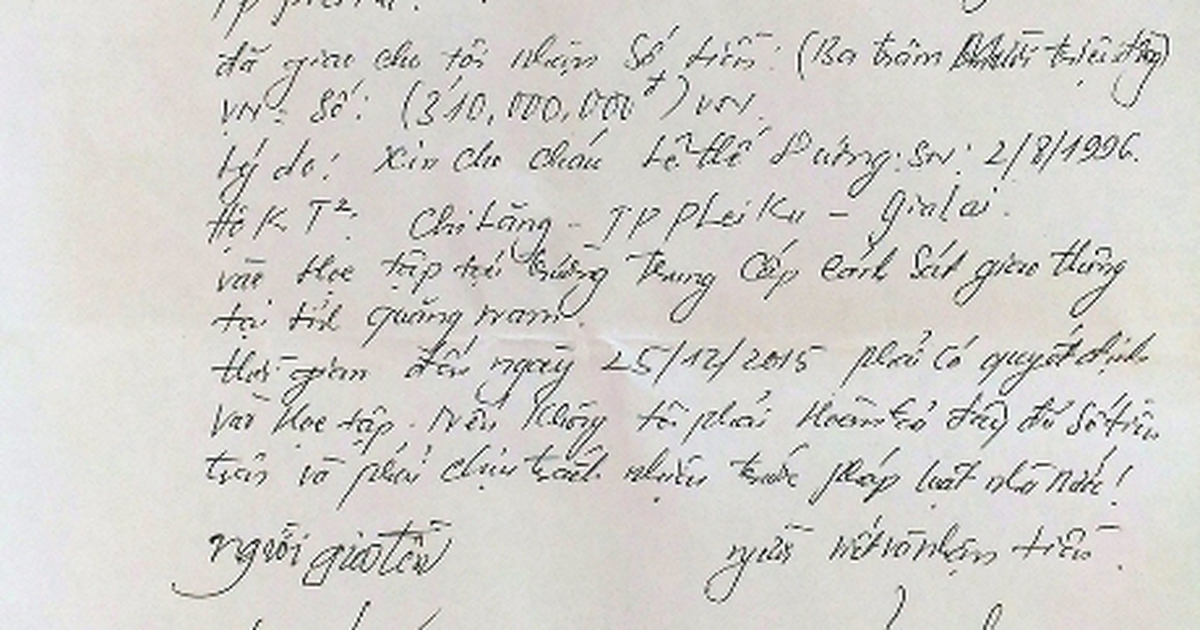 đã giao cho tôi nhận số tiền: (Ba trăm mười triệu đồng)
VN: Số: (310,000,000đ) VN.
Lý do: Xin cho cháu Lê thế Dương: SN: 2/8/1996.
Hộ K T²: Chi Lăng - TP PLeiKu - Gialai.
vào học tập tại trường Trung Cấp Cảnh Sát giao thông
tại tỉnh Quảng nam.
thời gian đến ngày 25/12/2015 phải có quyết định
vào học tập. Nếu không tôi phải hoàn trả đầy đủ số tiền
trên và phải chịu trách nhiệm trước pháp luật nhà nước!
người giao tiền
người viết và nhận tiền.